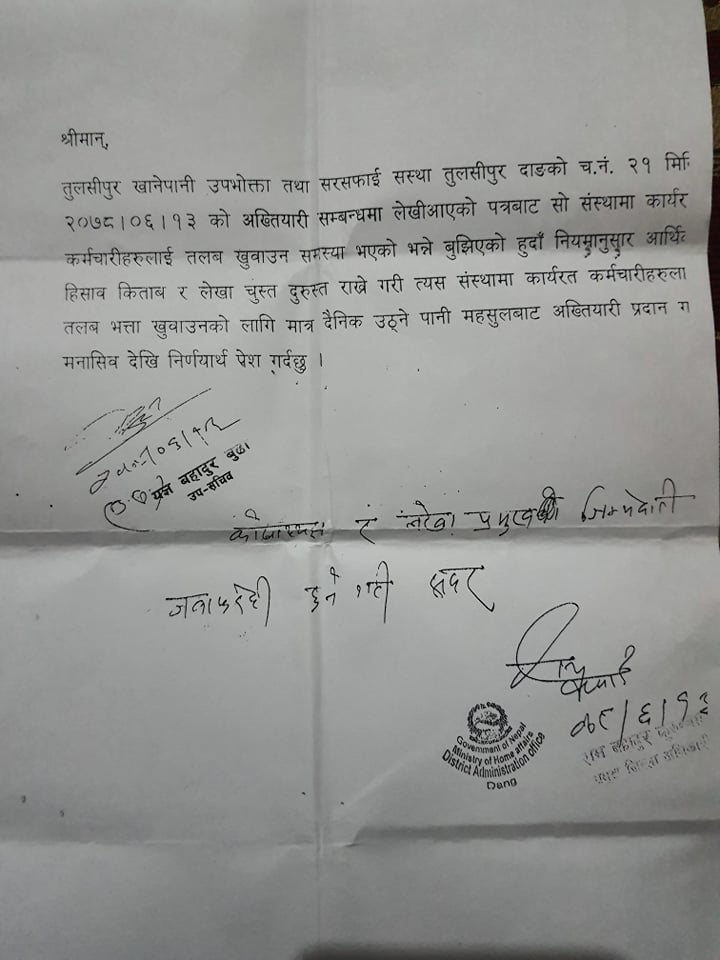 श्रीमान्,
तुलसीपुर खानेपानी उपभोक्ता तथा सरसफाई सस्था तुलसीपुर दाङको च.नं. २१ मिति
२०७८।०६।१३ को अख्तियारी सम्बन्धमा लेखीआएको पत्रबाट सो संस्थामा कार्यर
कर्मचारीहरुलाई तलब खुवाउन समस्या भएको भन्ने बुझिएको हुदाँ नियमानुसार आर्थि
हिसाव किताब र लेखा चुस्त दुरुस्त राख्ने गरी त्यस संस्थामा कार्यरत कर्मचारीहरुला
तलब भत्ता खुवाउनको लागि मात्र दैनिक उठ्ने पानी महसुलबाट अख्तियारी प्रदान ग
मनासिव देखि निर्णयार्थ पेश गर्दछु ।
बहादुर बुढा
उप-सचिव
र लेखा प्रमुखको जिम्मेवारी
जवाफदेही हुने गरी सदर
०७८/६/१३
राम बहादुर
प्रमुख जिल्ला अधिकारी
Government of Nepal
Ministry of Home affairs
District Administration office
Dang